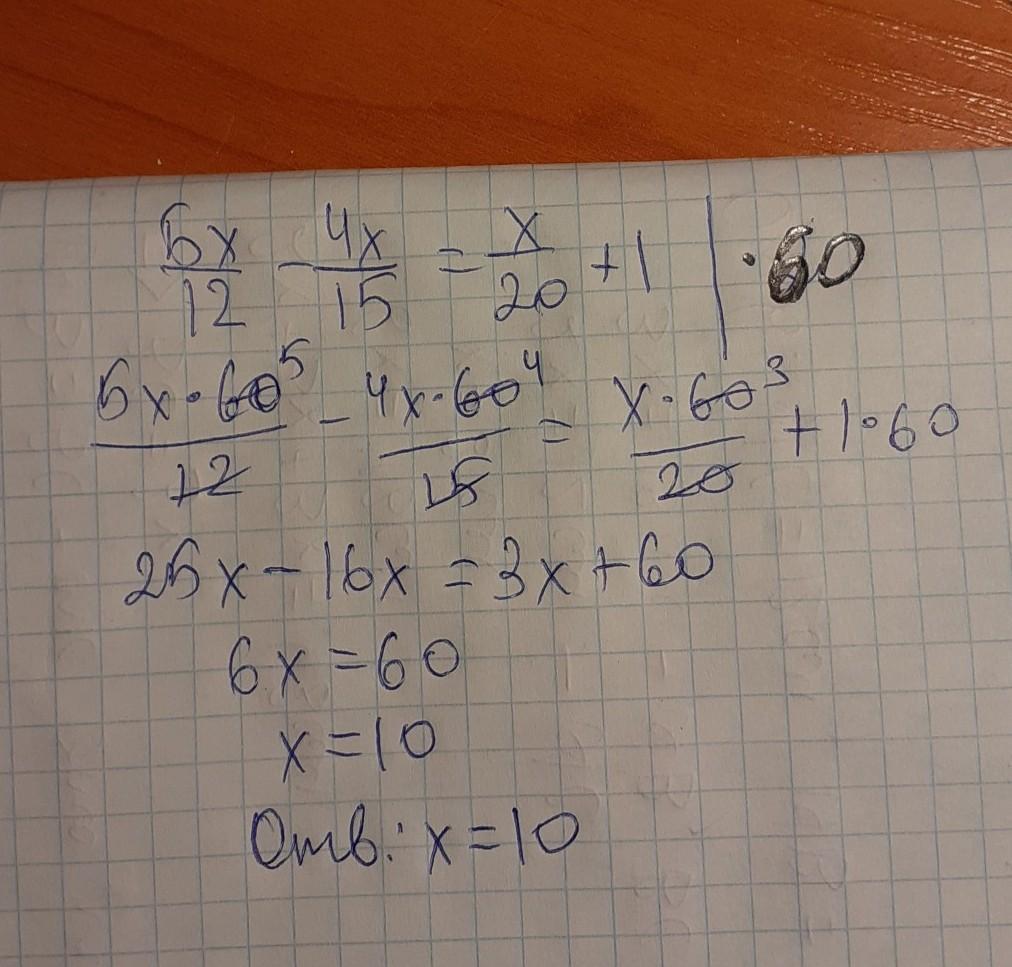 5x/12 - 4x/15 = x/20 + 1 | · 60
5x·60⁵/12 - 4x·60⁴/15 = x·60³/20 + 1·60
25x - 16x = 3x + 60
6x = 60
x = 10
Отв: x = 10